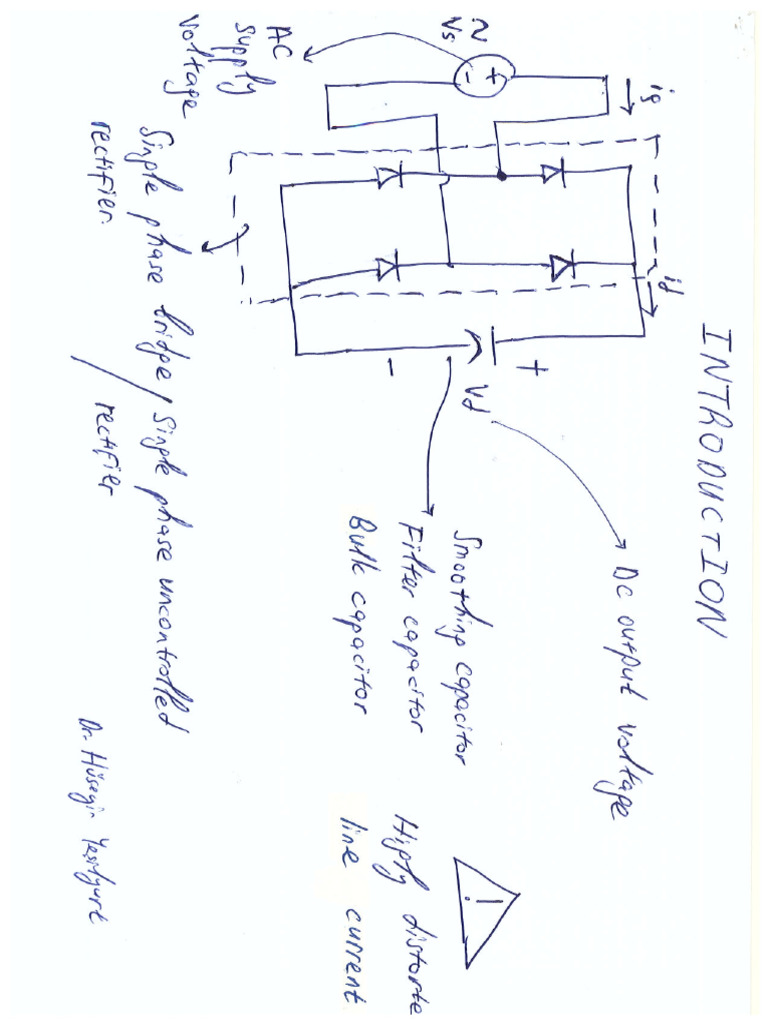 INTRODUCTION
is
id
~
Vs
+
-
+
Vd
-
DC output voltage
Smoothing capacitor
Filter capacitor
Bulk capacitor
!
Higly distorte
line current
AC
Supply
Voltage
Single phase bridge / Single phase uncontrolled
rectifier. rectifier
Dr. Hüseyin Yeşilyurt